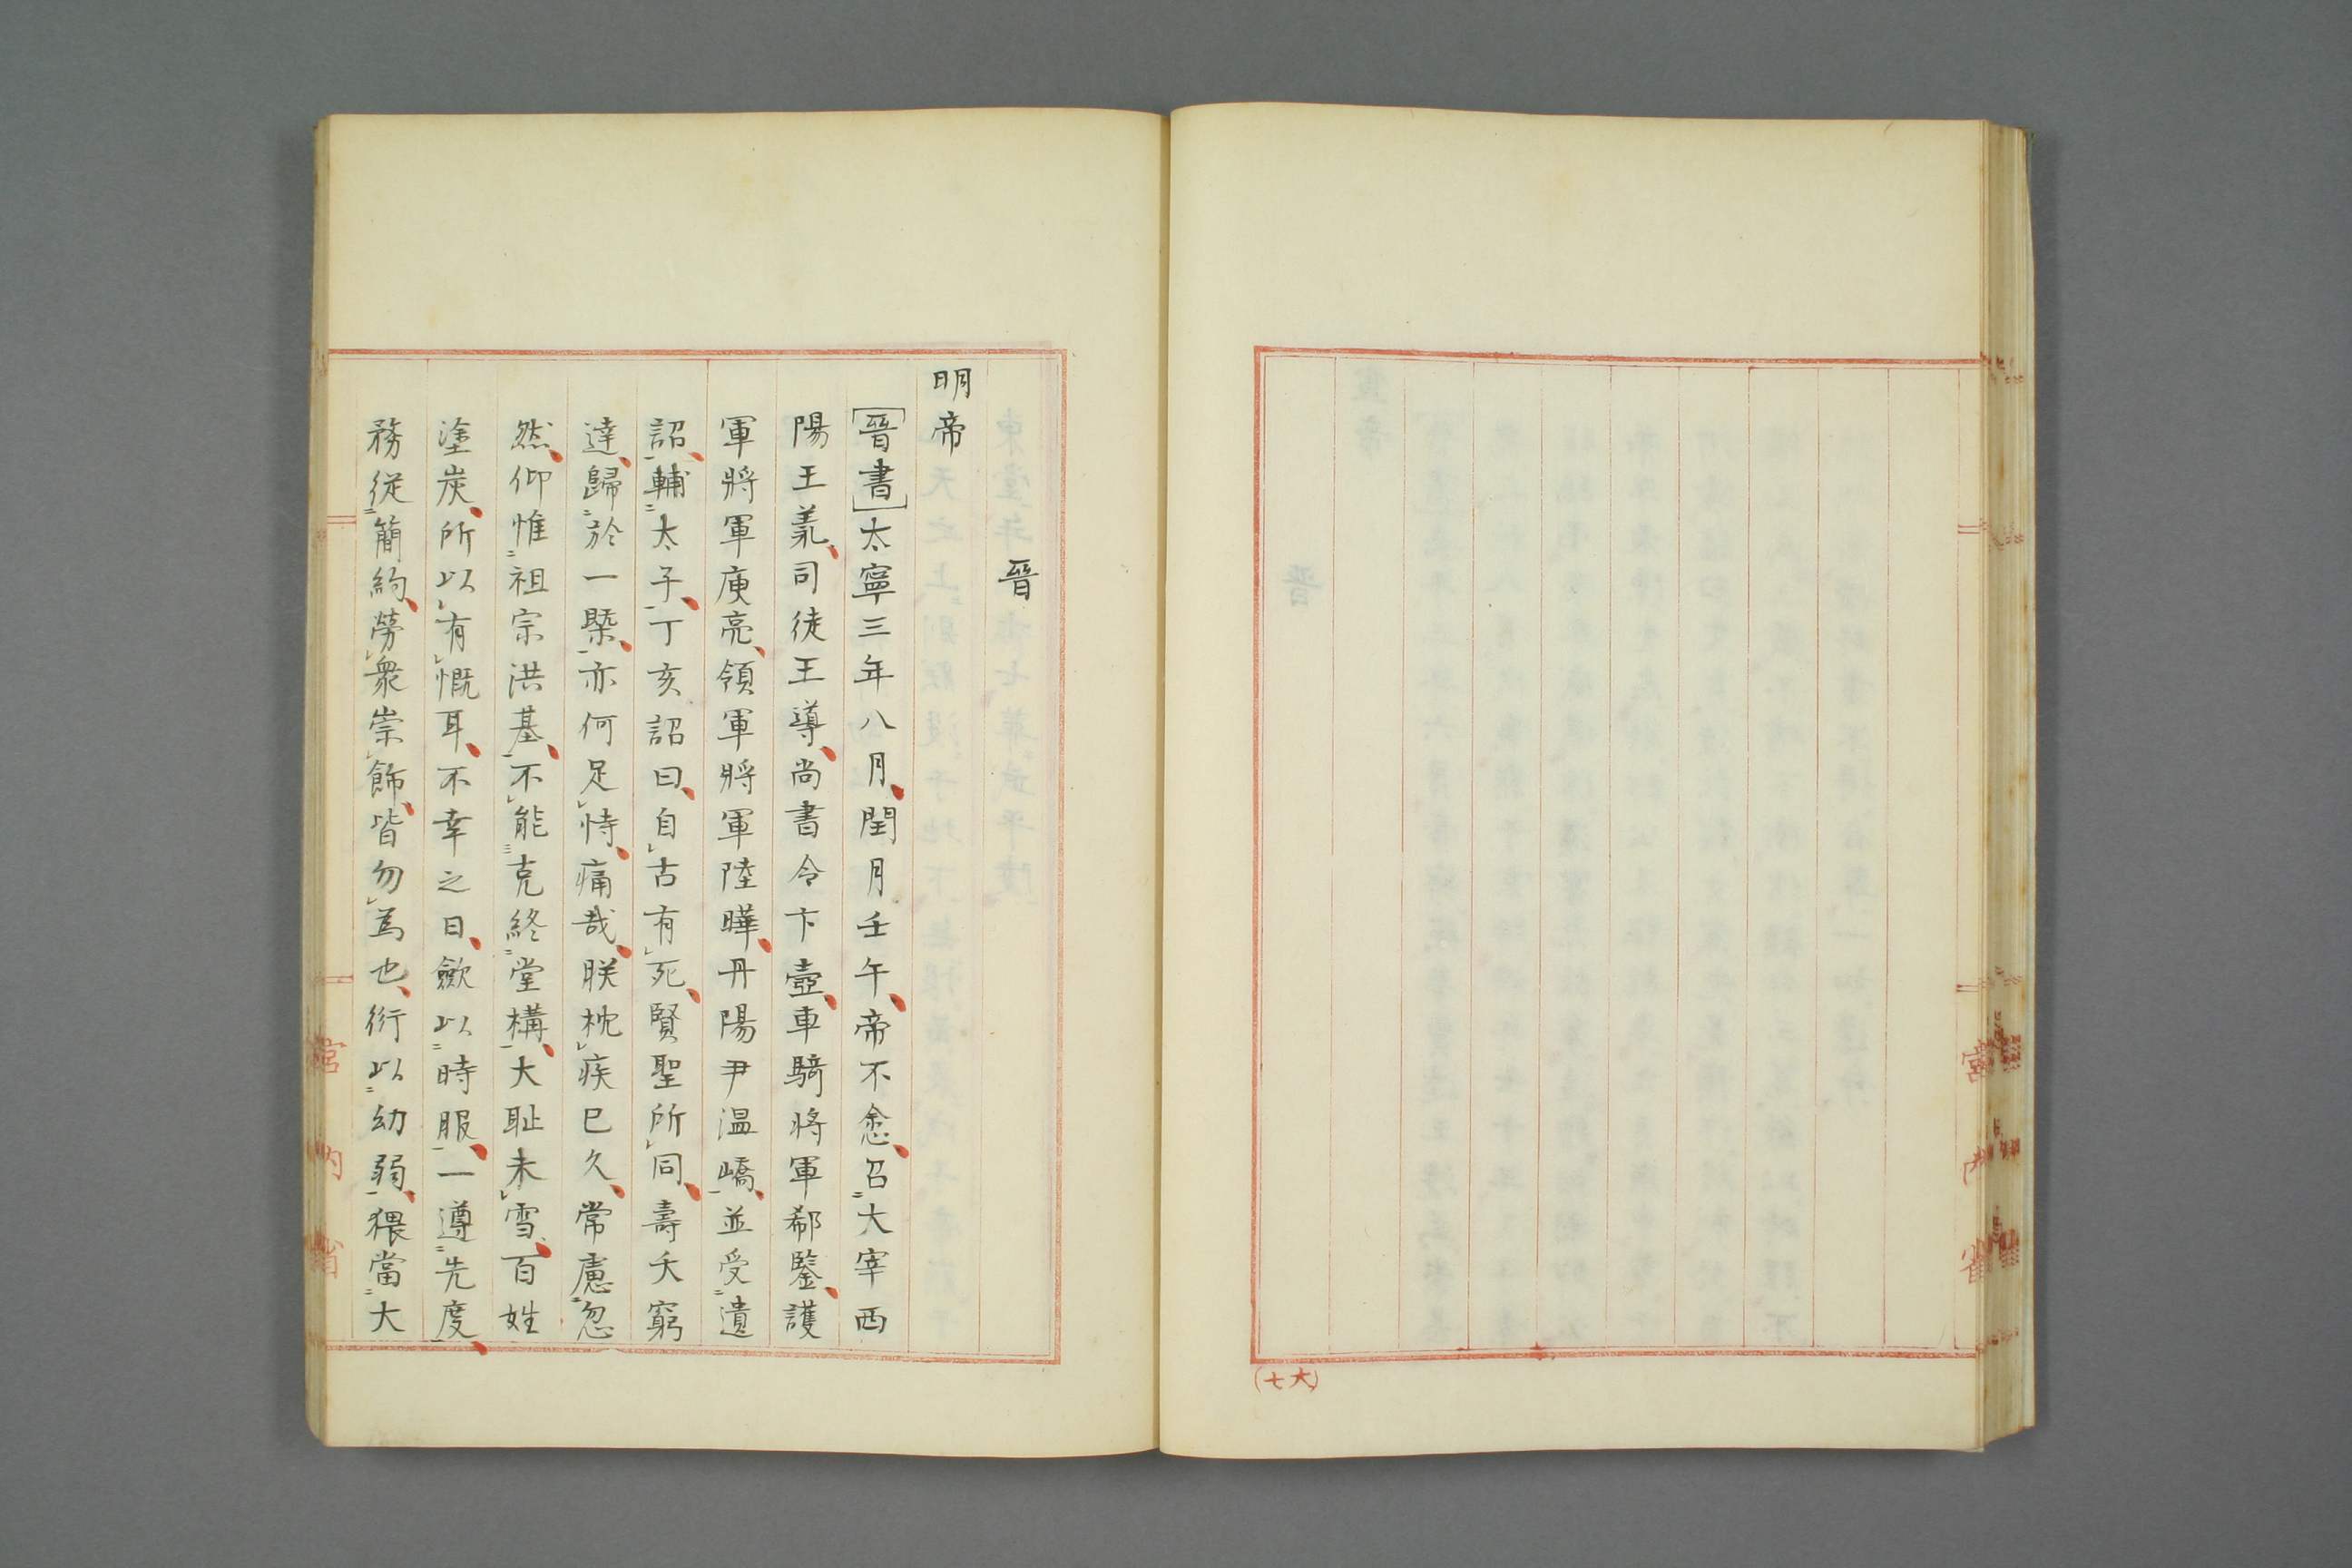 (六七)
宮内省
晉
明帝
[晉書]太寧三年八月、閏月壬午、帝不悆、召大宰西
陽王羕、司徒王導、尚書令卞壼、車騎將軍郗鑒、護
軍將軍庾亮、領軍將軍陸曄、丹陽尹温嶠、並受遺
詔、輔太子、丁亥詔曰、自古有死、賢聖所同、壽夭窮
達、歸於一槩、亦何足恃、痛哉、朕枕疾已久、常慮忽
然、仰惟祖宗洪基、不能克終堂構、大耻未雪、百姓
塗炭、所以有慨耳、不幸之日、歛以時服、一遵先度、
務從簡約、勞衆崇飾、皆勿為也、衍以幼弱、猥當大
宮内省